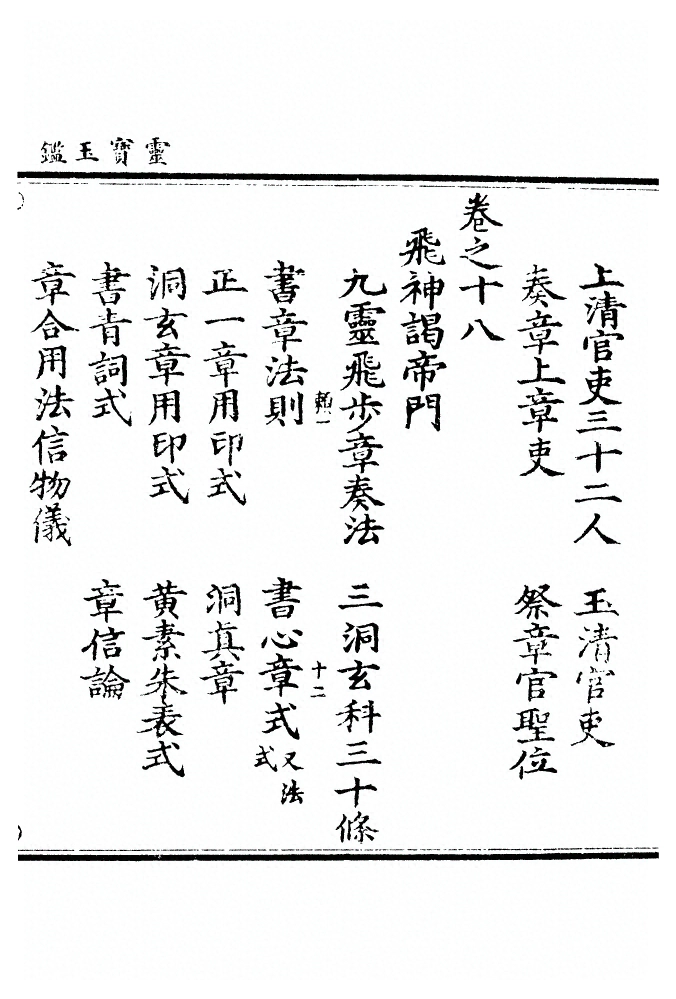 靈寶玉鑑
上清官吏三十二人　玉清官吏
奏章上章吏　祭章官聖位
卷之十八
飛神謁帝門
九靈飛步章奏法　三洞玄科三十條
頼一　十二
書章法則　書心章式又法式
正一章用印式　洞真章
洞玄章用印式　黄素朱表式
書青詞式　章信論
章合用法信物儀